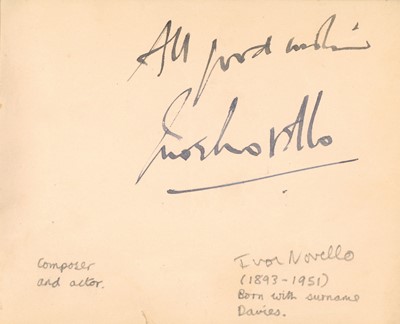 All good wishes
Ivor Novello
Composer
and actor.
Ivor Novello
(1893-1951)
Born with surname
Davies.